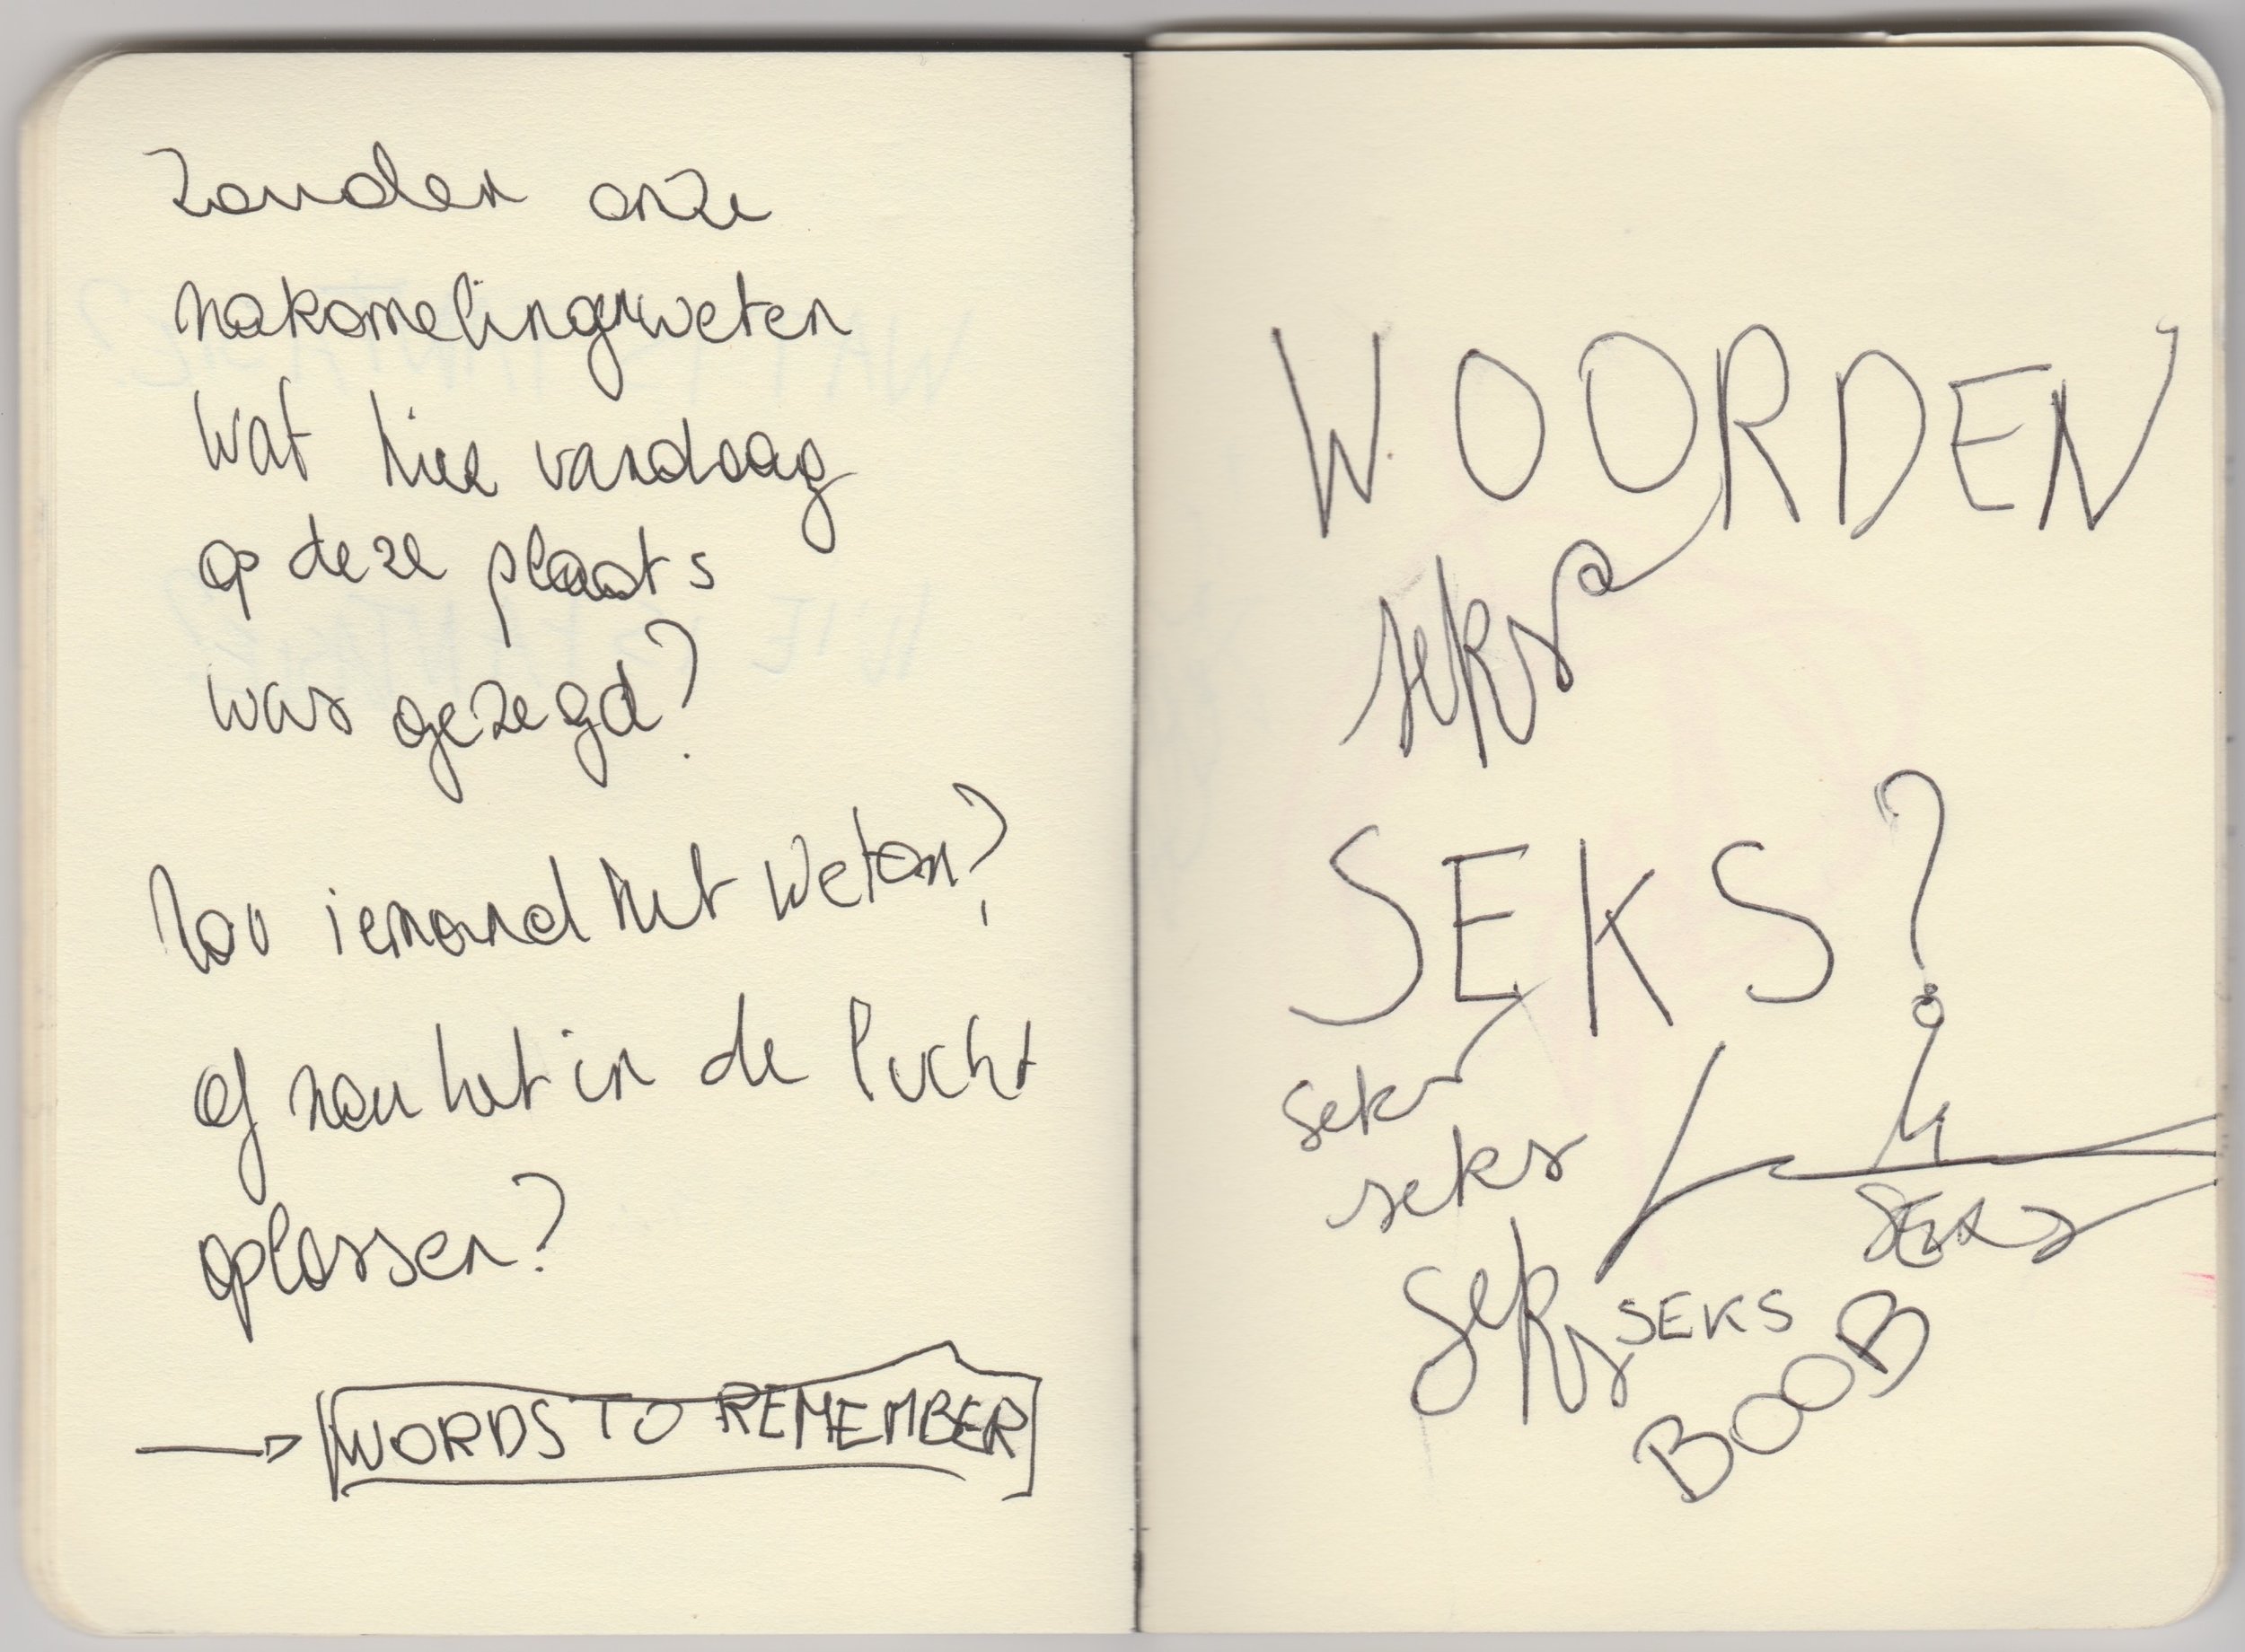 Zouden onze
nakomelingen weten
wat hier vandaag
op deze plaats
was gezegd?
Zou iemand het weten?
of zou het in de lucht
oplossen?
→ WORDS TO REMEMBER
WOORDEN
seks
SEKS?
seks
seks
SEKS
seks
SEKS
BOOB